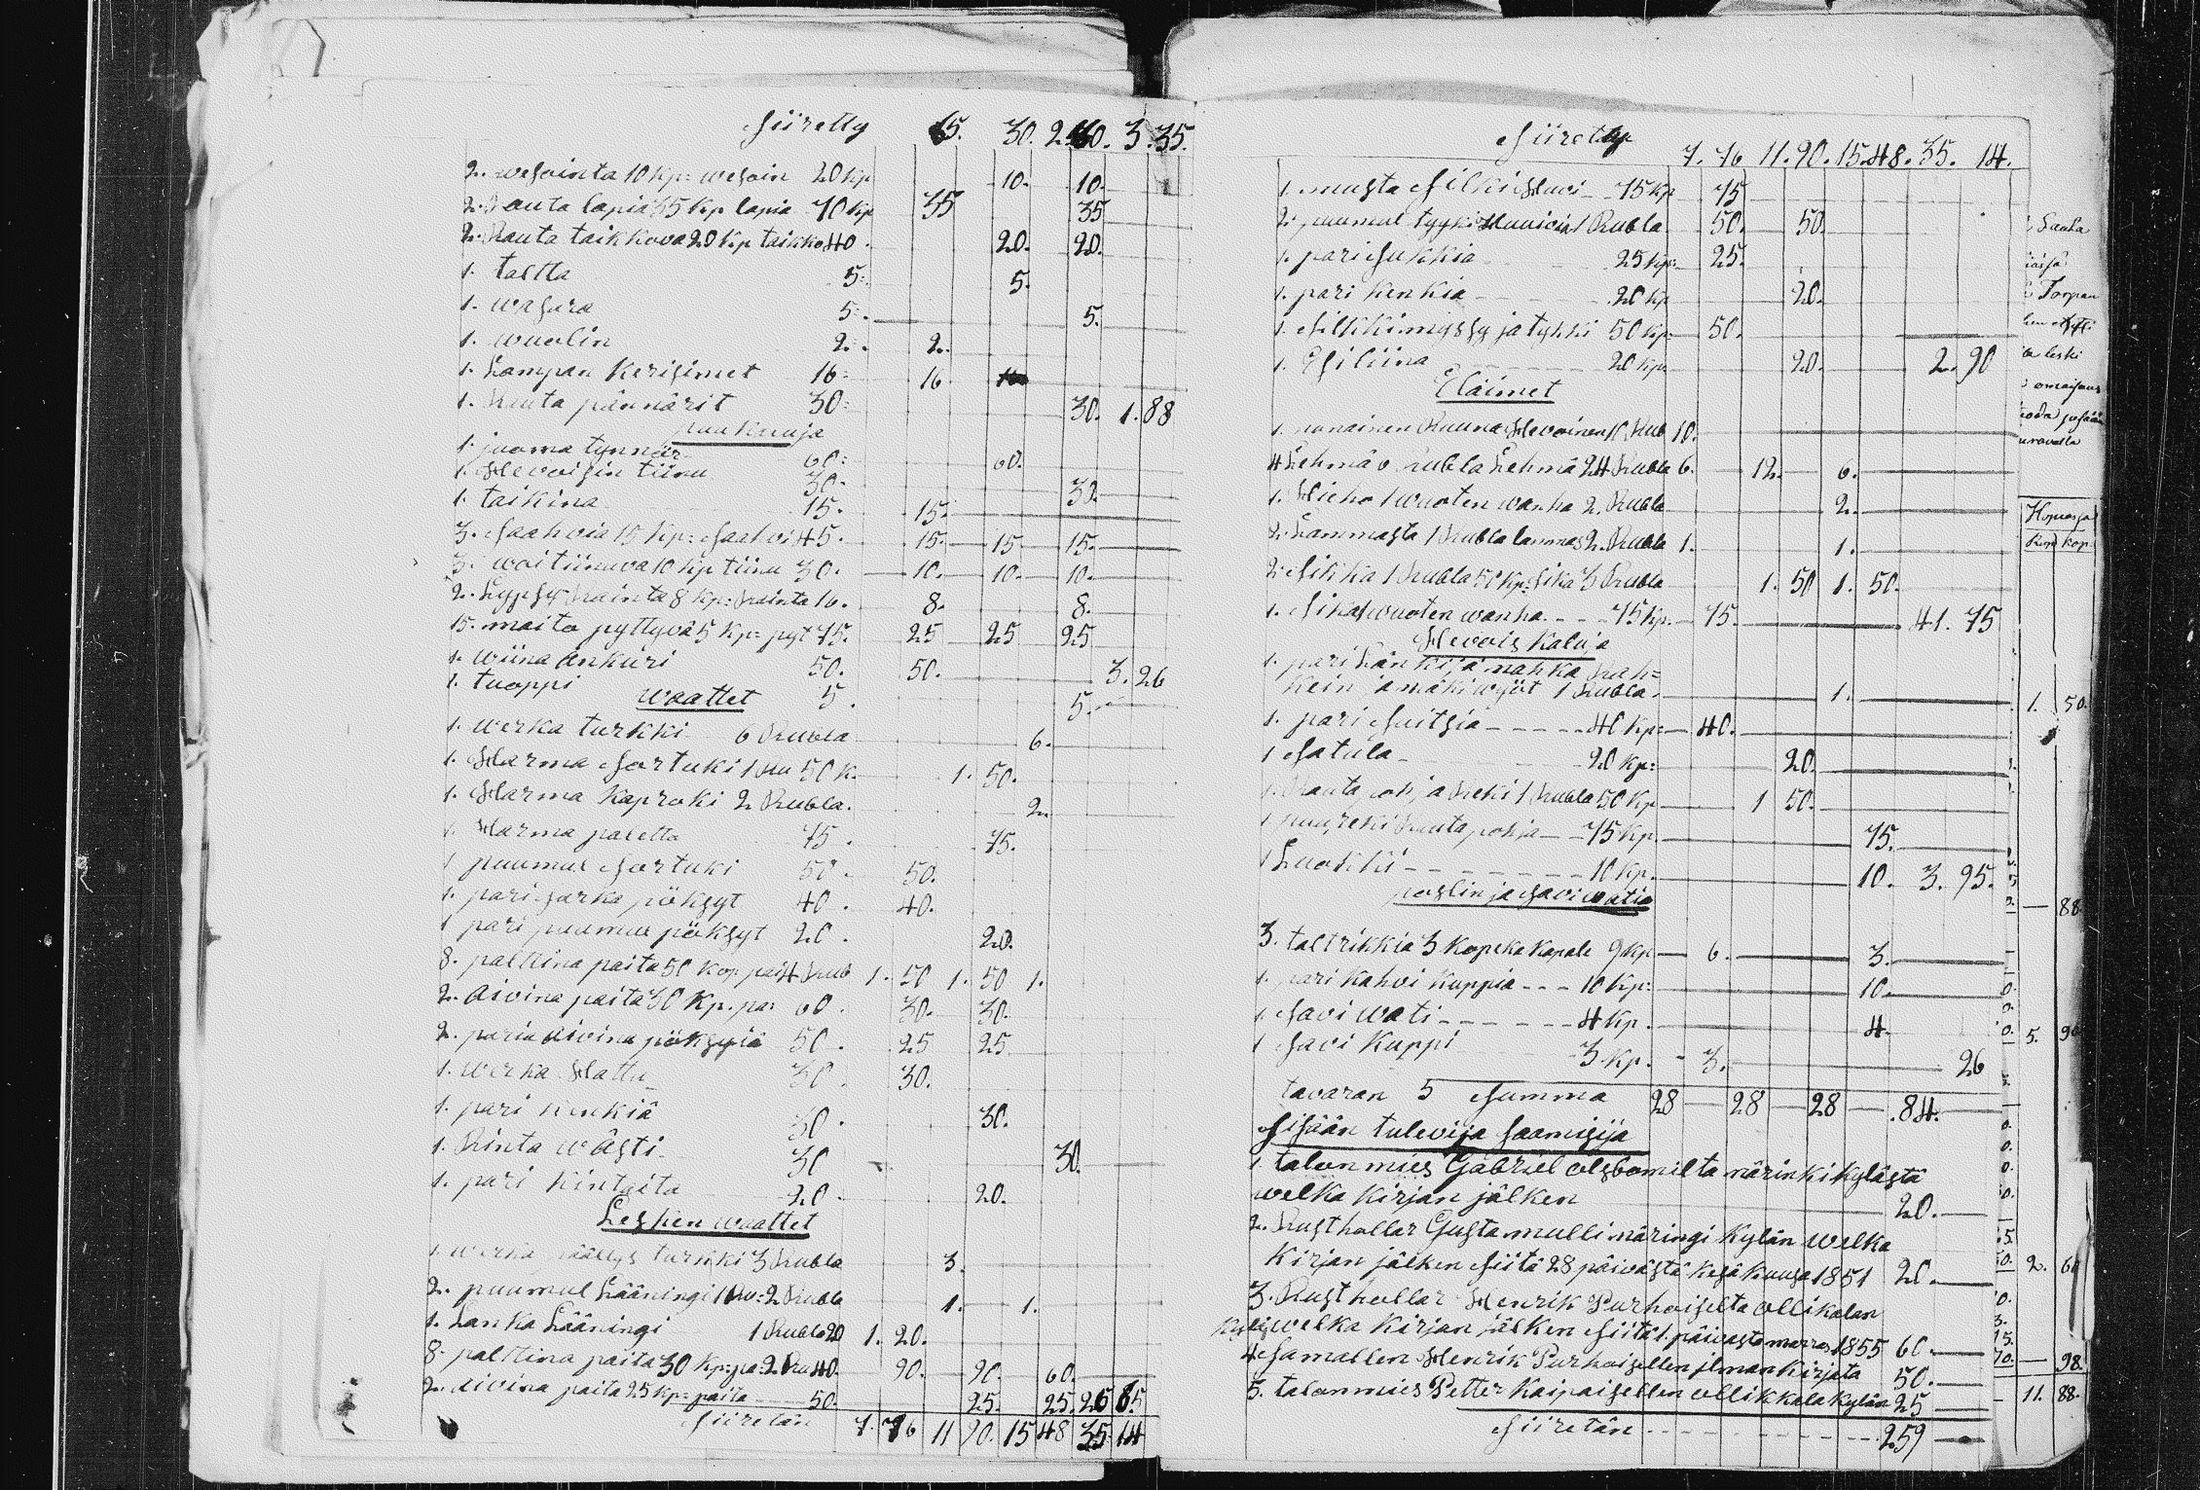 Siiretty 65. 30. 2.40. 3.35.
2. wesointa 10 kp: wesoin 20 kp 10. 10.
2. Rauta lapia 35 kp lapia 70 kp 35 35
2. Rauta taikkova 20 kp taikko 40. 20. 20.
1. taltta 5. 5.
1. wasara 5. 5.
1. wuolin 2. 2.
1. Lampan kerisimet 16: 16
1. Rauta pännärit 30: 30. 1.88
puu kaluja
1. juoma tynnör 60: 60.
1. Hevoisin tiinu 30. 30.
1. taikina 15. 15.
3. Saahvia 15 kp: Saahvi 45. 15. 15 15.
3. woi tiinuva 10 kp tiinu 30. 10. 10. 10.
2. Lypsy Rainta 8 kp: Rainta 16. 8. 8.
15. maito pyttyvä 5 kp: pyt 75. 25 25 25
1. wiina ankuri 50. 50. 3.26
1. tuoppi 5. 5.
waattet
1. werka turkki 6 Rubla 6.
1. Harma Sortuki 1 Ru 50 k. 1. 50.
1. Harma kaproki 2 Rubla. 2.
1. Harma paletta 75. 75.
1 puumul Sortuki 50. 50.
1. pari sarka pöksyt 40. 40.
1 pari puumul pöksyt 20. 20.
8. palttina paita 50 kop: pai 4 Rub 1. 50 1. 50 1.
2. aivina paita 30 kp. pa: 60. 30. 30.
2. paria aivina pöksyiä 50. 25 25
1. werka Hattu 30. 30.
1. pari kenkiä 30. 30.
1. Rinta wästi 30 30.
1. pari kintaita 20. 20.
Lesken waattet
1. werka päällys turkki 3 Rubla 3.
2. puumul Lääningi 1 Ru: 2 Rubla 1. 1.
1. Lanka Lääningi 1 Rubla 20 1. 20.
8. palttina paita 30 kp: pa: 2 Ru 40. 90. 90. 60.
2. aivina paita 25 kp: paita 50. 25. 25. 26 65
Siiretän 7. 76 11 90. 15 48 35. 14
Siiretty 7. 76 11. 90. 15.48. 35. 14.
1. musta Silki Huvi 75 kp 75
2. puumul tyyki Huivia 1 Rubla 50. 50.
1. pari Sukkia 25 kp: 25.
1. pari kenkia 20 kp 20.
1. Silkkimyssy ja tykki 50 kp: 50.
1. Esiliina 20 kp: 20. 2. 90
Eläimet
1. punainen Ruuna Hevoinen 10 Rub 10.
4 Lehmä 6 Rubla Lehmä 24 Rubla 6. 12. 6.
1. Hieho 1 wuoten wanha 2 Rubla 2.
2. Lammasta 1 Rubla lammas 2. Rubla 1. 1.
2. Sikka 1 Rubla 50 kp: Sika 3 Rubla 1. 50 1. 50.
1. Sika 1 wuoten wanha 75 kp. 75. 41. 75
Hevois kaluja
1. pari Länkijä nahka Rah=
kein ja mäkiwyöt 1 Rubla. 1.
1. pari Suitsia 40 kp: 40.
1 Satula 20 kp: 20.
1. Rauta pohja Reki 1 Rubla 50 kp 1 50.
1 puu reki Rauta pohja 75 kp. 75.
1 Luokki 10 kp. 10. 3. 95.
poslin ja Savi watia
3. taltrikkia 3 kopeka kapale 9 kp 6. 3.
1. pari kahvi kuppia 10 kp: 10.
1. Savi wati 4 kp. 4.
1 Savi kuppi 3 kp. 3. 26
tavaran 5 Summa 28 28 28 84.
Sisään tulevija Saamisija
1. talon mies Gabriel olsbomilta närinki kylästä
welka kirjan jälken 20.
2. Rusthollar Gusta mulli näringi kylän welka
kirjan jälken Siitä 28 päivästä kesäkuusa 1851 20.
3. Rusthollar Henrik Purhoiselta ollikalan
kyläs welka kirjan jälken Siitä 1. päivästa marras 1855 60.
4. Samallen Henrik Purhoisellen ilman kirjata 50.
5. talonmies Petter kaipaisellen ollikkala kylän 25
Siiretän 259
Torpan
leski
omaisuus
Kop
1. 50.
88
5. 90
2.
98.
11. 88.